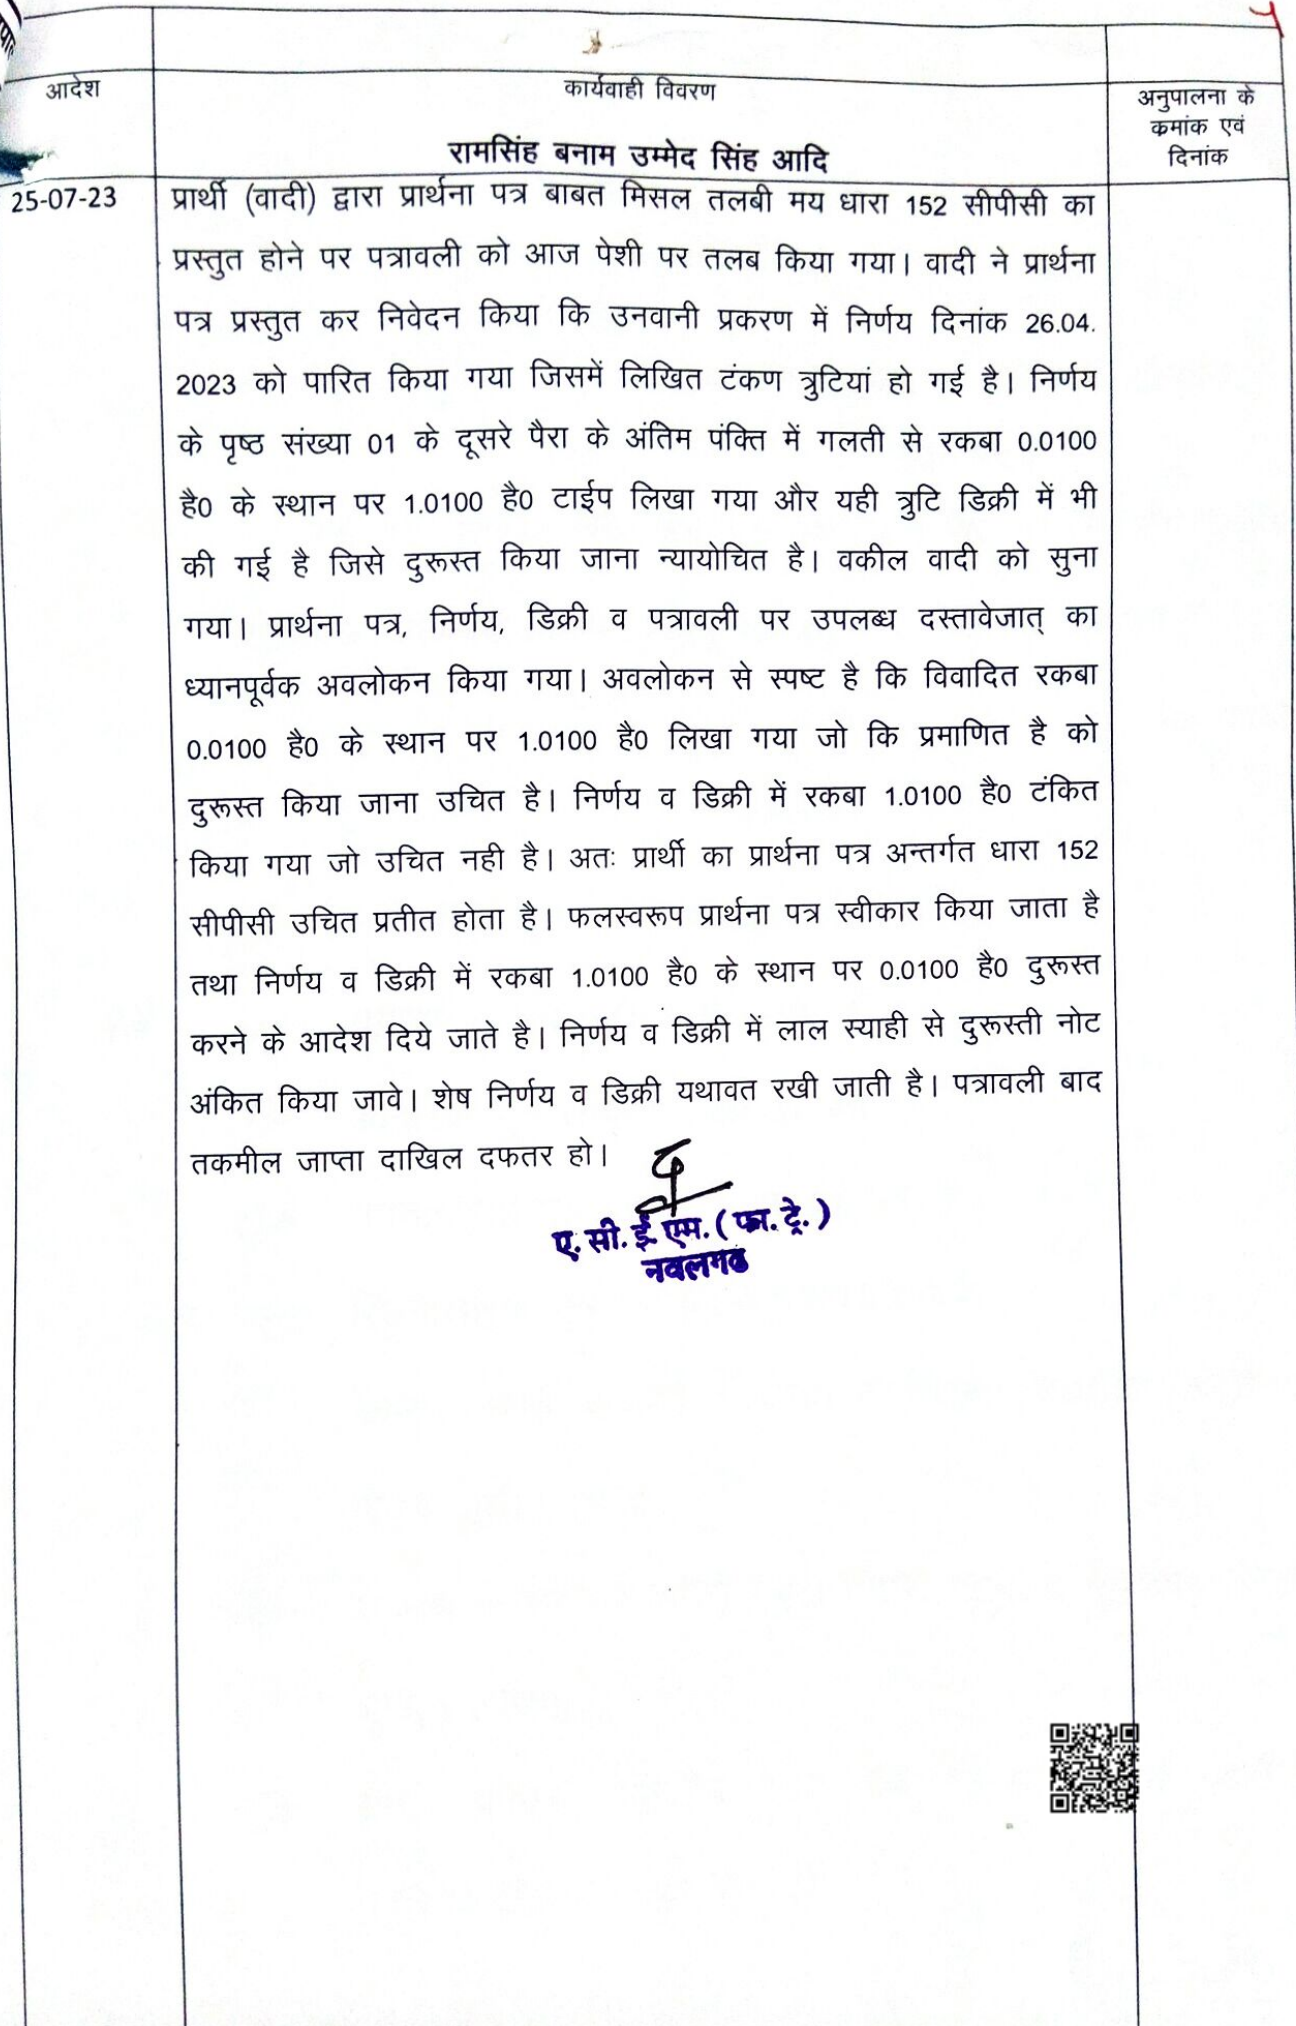 आदेश
कार्यवाही विवरण
अनुपालना के
कमांक एवं
दिनांक
रामसिंह बनाम उम्मेद सिंह आदि
25-07-23
प्रार्थी (वादी) द्वारा प्रार्थना पत्र बाबत मिसल तलबी मय धारा 152 सीपीसी का
प्रस्तुत होने पर पत्रावली को आज पेशी पर तलब किया गया। वादी ने प्रार्थना
पत्र प्रस्तुत कर निवेदन किया कि उनवानी प्रकरण में निर्णय दिनांक 26.04.
2023 को पारित किया गया जिसमें लिखित टंकण त्रुटियां हो गई है। निर्णय
के पृष्ठ संख्या 01 के दूसरे पैरा के अंतिम पंक्ति में गलती से रकबा 0.0100
है0 के स्थान पर 1.0100 है0 टाईप लिखा गया और यही त्रुटि डिक्री में भी
की गई है जिसे दुरूस्त किया जाना न्यायोचित है। वकील वादी को सुना
गया। प्रार्थना पत्र, निर्णय, डिक्री व पत्रावली पर उपलब्ध दस्तावेजात् का
ध्यानपूर्वक अवलोकन किया गया। अवलोकन से स्पष्ट है कि विवादित रकबा
0.0100 है0 के स्थान पर 1.0100 है0 लिखा गया जो कि प्रमाणित है को
दुरूस्त किया जाना उचित है। निर्णय व डिक्री में रकबा 1.0100 है0 टंकित
किया गया जो उचित नही है। अतः प्रार्थी का प्रार्थना पत्र अन्तर्गत धारा 152
सीपीसी उचित प्रतीत होता है। फलस्वरूप प्रार्थना पत्र स्वीकार किया जाता है
तथा निर्णय व डिक्री में रकबा 1.0100 है0 के स्थान पर 0.0100 है0 दुरूस्त
करने के आदेश दिये जाते है। निर्णय व डिक्री में लाल स्याही से दुरूस्ती नोट
अंकित किया जावे। शेष निर्णय व डिक्री यथावत रखी जाती है। पत्रावली बाद
तकमील जाप्ता दाखिल दफतर हो।
ए. सी. ई. एम. ( फा. ट्रे. )
नवलगढ